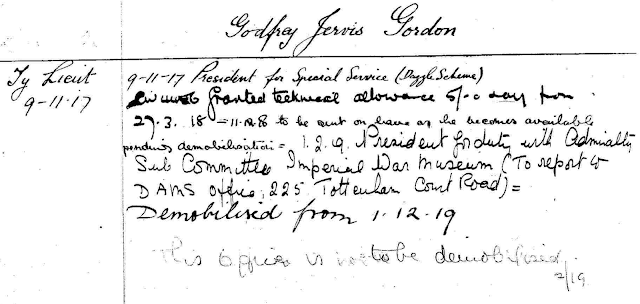 Godfrey Jervis Gordon
Ty Lieut
9-11-17
9-11-17 President for Special Service (Dazzle Scheme)
granted technical allowance 5/- a day from
27.3.18 - 11.12.18 to be sent on leave as he becomes available
pending demobilisation = 1.2.19. President for duty with Admiralty
Sub Committee Imperial War Museum (To report to
DAMS office, 225 Tottenham Court Road) =
Demobilised from 1.12.19
This Officer is not to be demobilised.
2/19